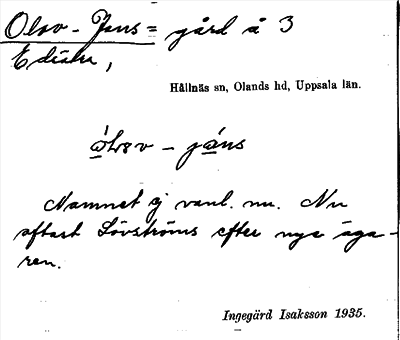 Olov-Jans= gård å 3
Edäbn,
Hållnäs sn, Olands hd, Uppsala län.
jans
Namnet ej vanl. nu. Nu
oftast Lövströms efter nye äga-
ren.
Ingegärd Isaksson 1935.